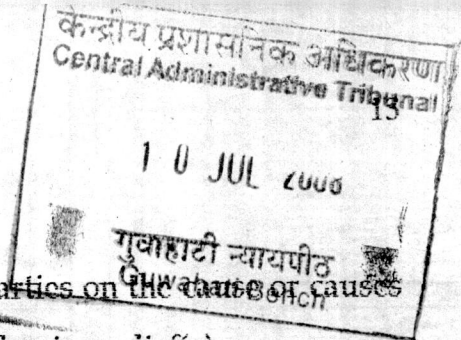 केन्द्रीय प्रशासनिक अधिकरण
Central Administrative Tribunal
15
10 JUL 2006
गुवाहाटी न्यायपीठ
Guwahati Bench
arties on the cause or causes